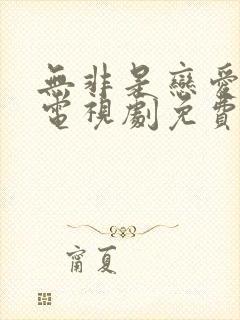 無非是戀愛
電視劇免費
甯夏